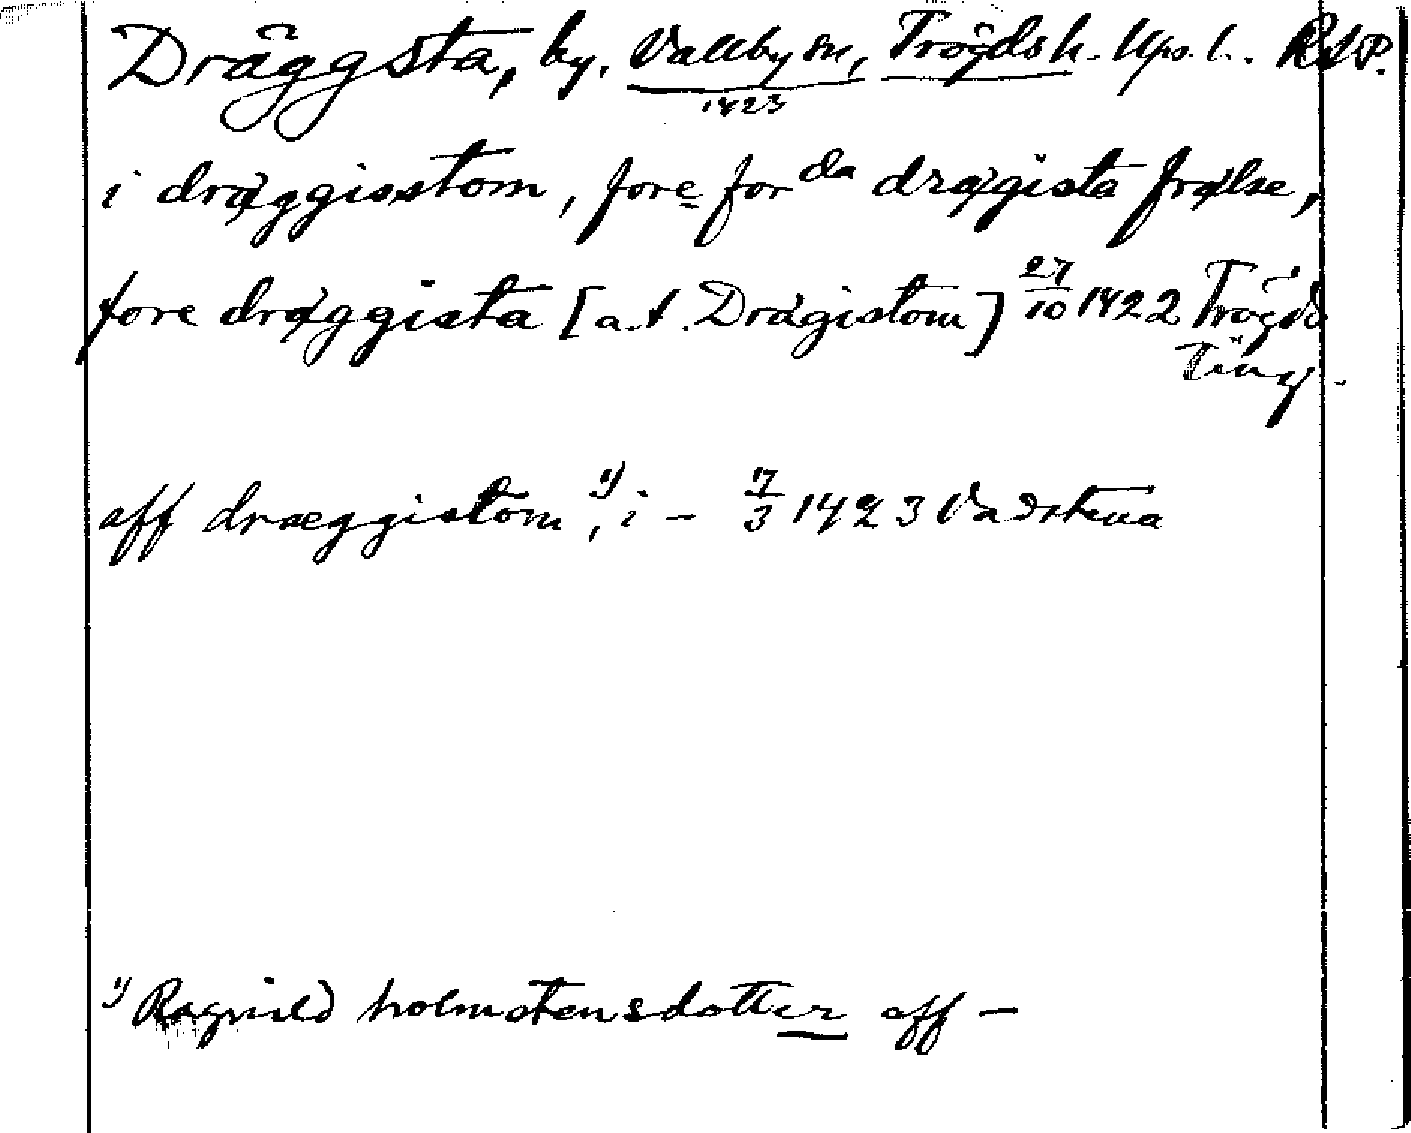 Dräggsta, by, Vallby sn, Trögds h. Ups. l. RAP.
1423
i dræggisstom, fore for da drægista frælse,
fore dræggista [a.t. Drägistom] 27/10 1422 Trögds
Ting.
aff dræggistom 1), i - 7/3 1423 Vadstena
1) Ragnild holmstensdotter aff -